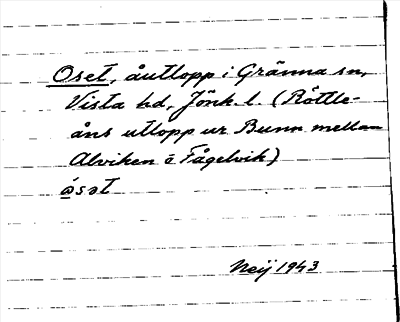 Oset, åutlopp i Gränna sn,
Vista hd, Jönk. l. (Röttle-
åns utlopp ur Bunn mellan
Alviken o Fågelvik)
ósət
Neij 1943